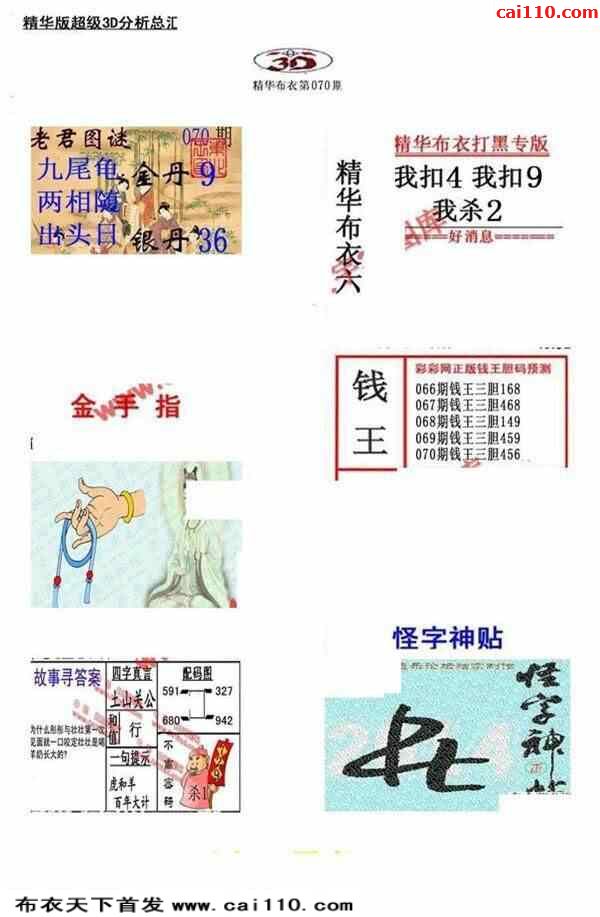 cai110.com
精华版超级3D分析总汇
3D
精华布衣第070期
老君图谜
070期
九尾龟
金丹 9
两相随
出头日
银丹 36
精华布衣六
精华布衣打黑专版
我扣4 我扣9
我杀2
=====好消息=======
金手指
钱王
彩彩网正版钱王胆码预测
066期钱王三胆168
067期钱王三胆468
068期钱王三胆149
069期钱王三胆459
070期钱王三胆456
怪字神贴
怪字神
故事寻答案
为什么彤彤与壮壮第一次
见面就一口咬定壮壮是喝
羊奶长大的?
四字真言
土山关公
和值
行
一句提示
虎和羊
百年大计
配码图
591
327
680
942
杀1
布衣天下首发 www.cai110.com